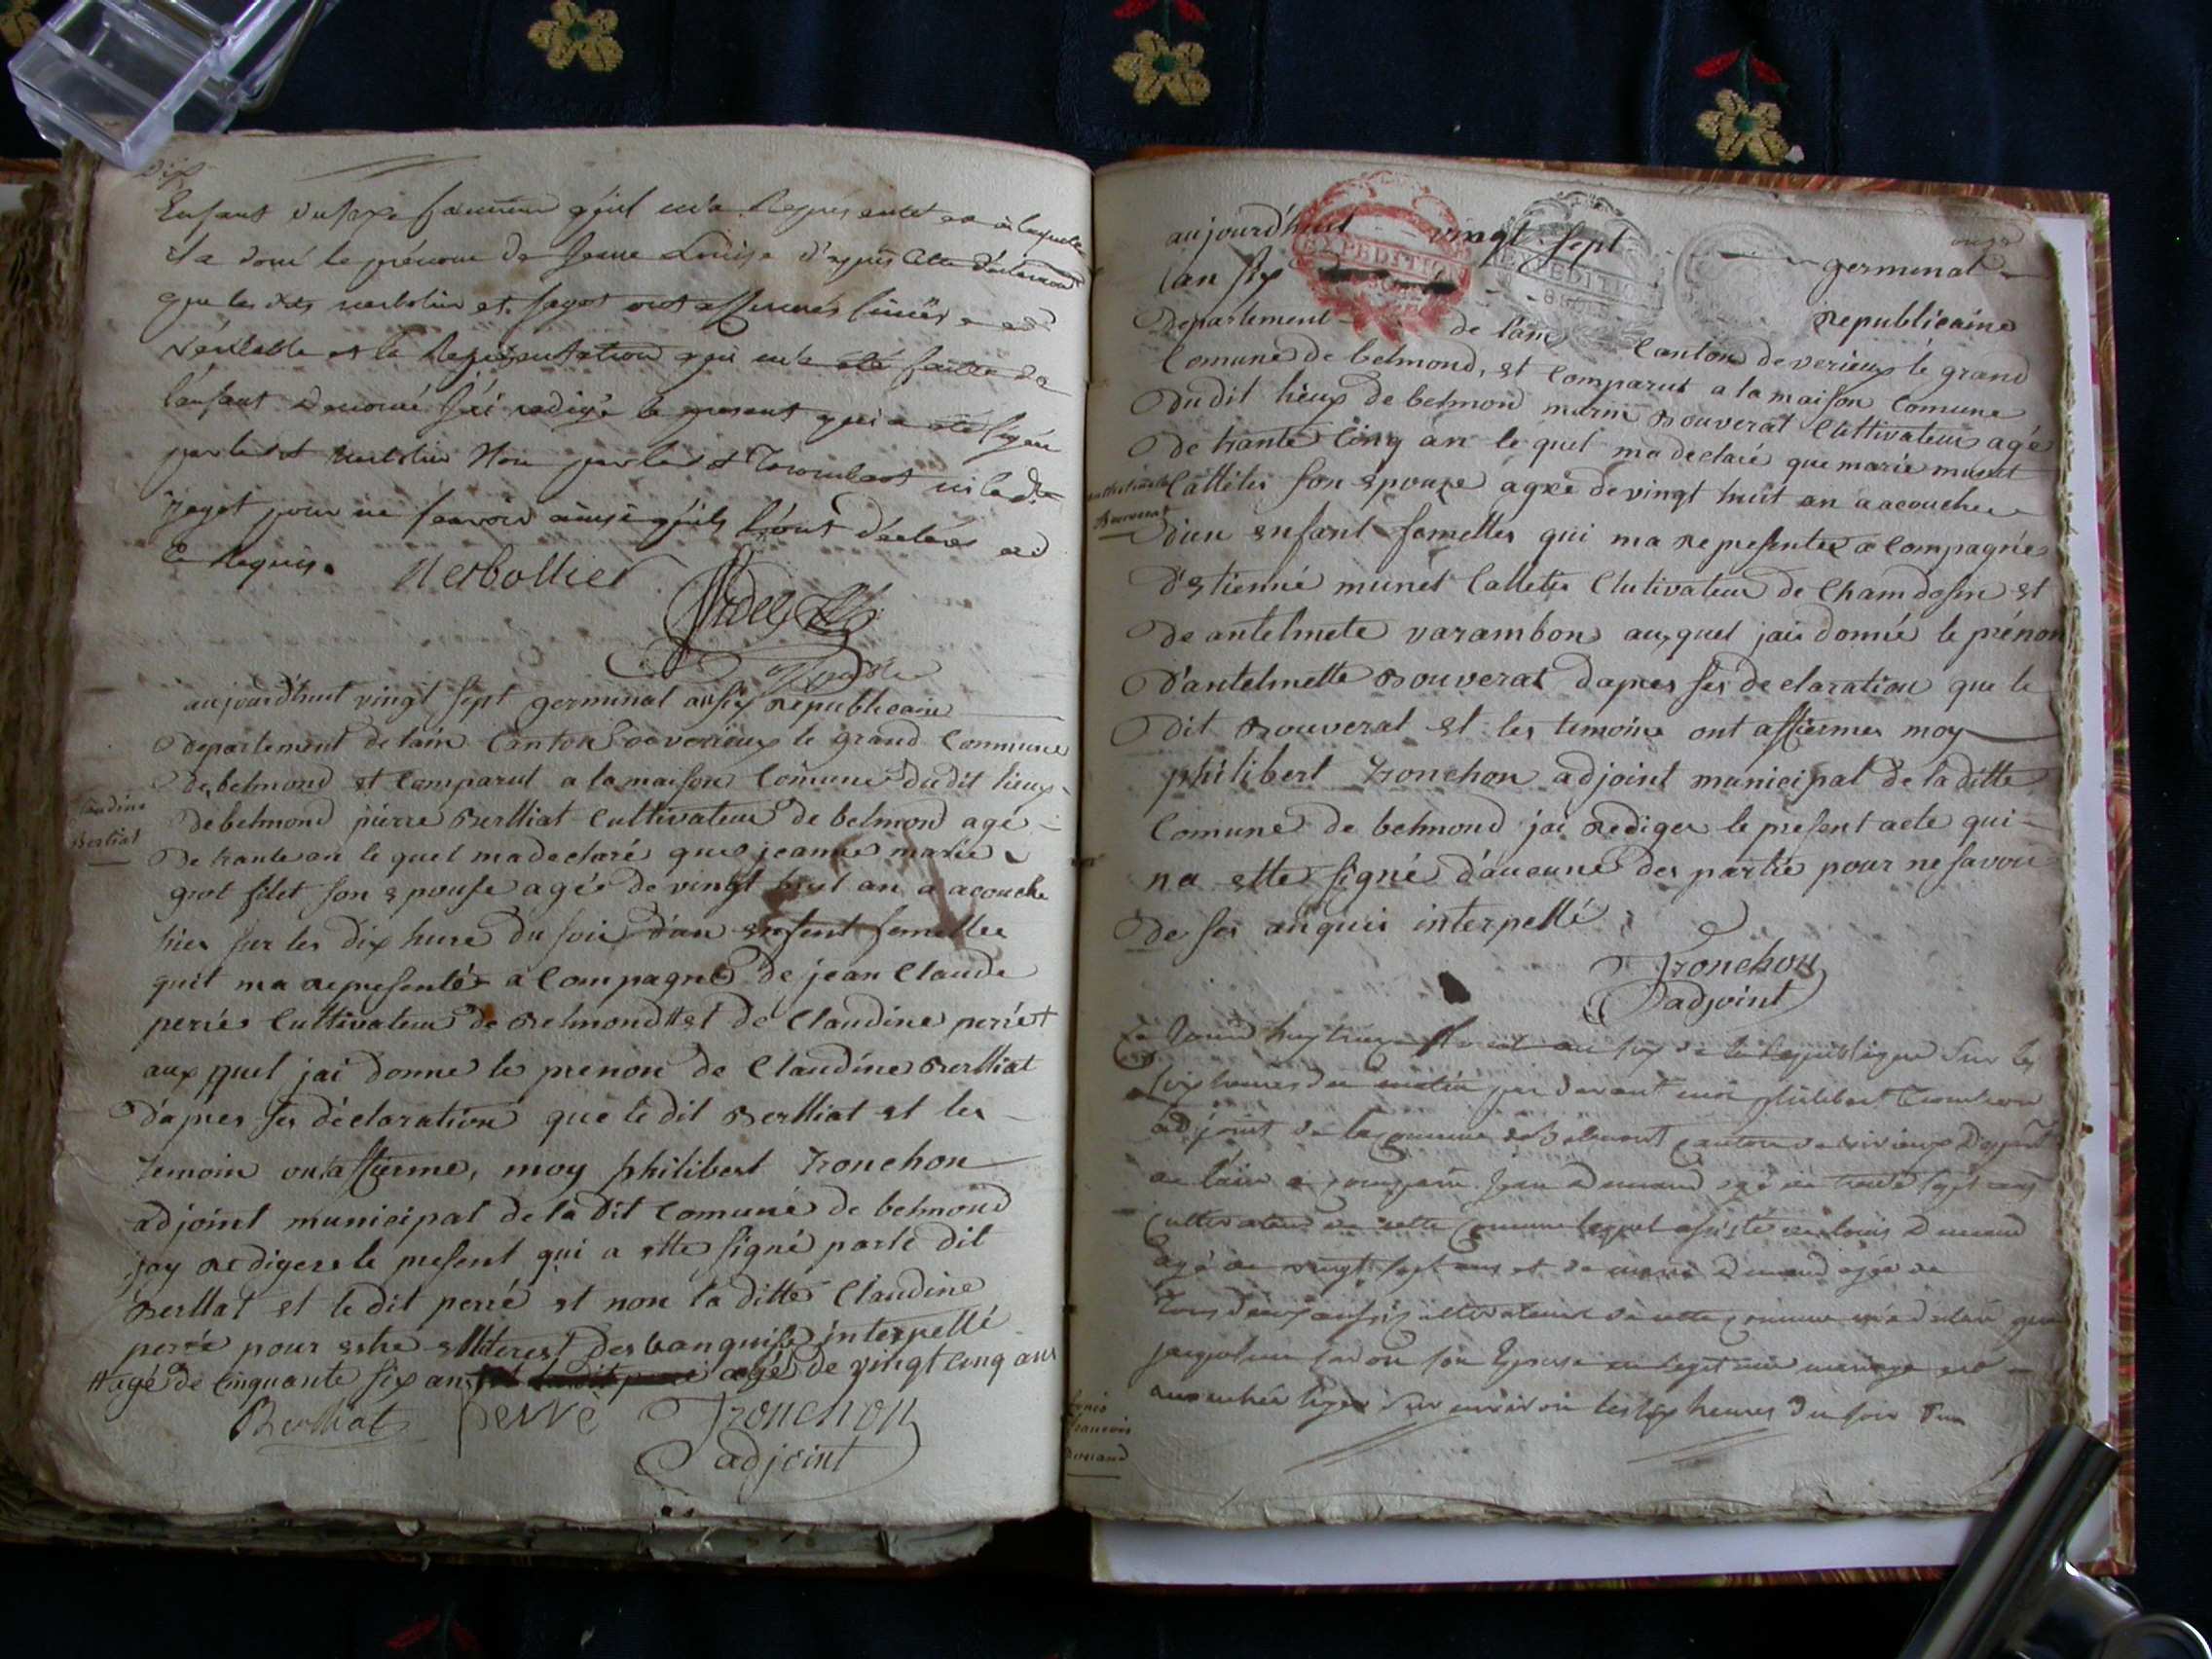 Dix
Enfant du sexe feminin qu'il m'a Representé et à laquelle
il a doné le prénom de Jeane Louise d'apprès cette déclaration
que les dits nerbolier et jayet ont affirmés sincère et
véritable et la Representation qui m'a été faitte de
l'enfant denomé J'ai redigé le present qui a été signée
par le dt Nerbolier Non par le dt Trombert ni le dt
jayet pour ne sçavoir ainsi qu'ils l'ont déclaré
Ce Requis. Nerbollier
aujourd'huit vingt sept germinal an six Republicaine
Departement de lain Canton de verieux le grand Commune
de belmond et Comparut a la maison Comune dudit lieux
Claudine
Berliat
de belmond pierre Berlliat Cultivateur de belmond agé
De trante an le quel ma declaré que jeanne marie
grot filet son epouse agée de vingt huit an a acouche
hier sur les dix hure du soir d'un enfent femelles
quit ma representé a Compagné de jean Claude
perré Cultivateur de Belmond # et de Claudine perret
aux quel jai donne le prenon de Claudine Berlliat
D'apres ses déclaration que le dit Berlliat et les
temoin ont affierme, moy philibert tronchon
adjoint municipal de la dit Comune de belmond
jay rediger le present qui a ette signé parle dit
Berlliat et le dit perré et non la ditte Claudine
perée pour estre elliterest des banquise interpellé
# agé de cinquante six ans agés de vingt cinq ans
Berlliat perré Tronchon
adjoint
onze
aujourd'huit vingt sept germinal
lan six Republicaine
EXPEDITION
EXPEDITION
Departement de lain Canton de verieux le grand
Comune de belmond, et Comparut a la maison Comune
Dudit lieux de belmond marin Bouverat Cultivateur agé
De trante cinq an le quel ma declaré que marie munet
Anthelmette
Bouverat
Callilis son epouze agée de vingt huit an a acouchee
d'un enfant femelles qui ma representer a Compagnée
d'Etienne munet Calletie Clutivateur de Chamdosin et
De antelmete varambon auxquel jais donné le prénon
D'antelmette Bouverat dapres ses declaration que le
Dit Bouverat et les temoins ont affiermer moy
philibert tronchon adjoint municipal de la ditte
Comune de belmond jai rediger le present acte qui
na ette signé d'aucune des partie pour ne savoir
de ses anquis interpellé
Tronchon
adjoint
Ce Jourd'huy treize floreal an six de la republique sur les
six heures du matin par devant moi philibert Tronchon
adjoint de la Commune de Belmont canton de virieux Depart
de lain a comparu Jean Demand agé de trente sept ans
cultivateur de cette Commune lequel assisté de Louis Demand
agé de vingt sept ans et de marie Demand agée de
tous deux aussi cultivateurs de cette commune m'a declaré que
jaqueline son Epouse en legitime mariage est
accouchée hyer sur environ les six heures du soir d'un
francois